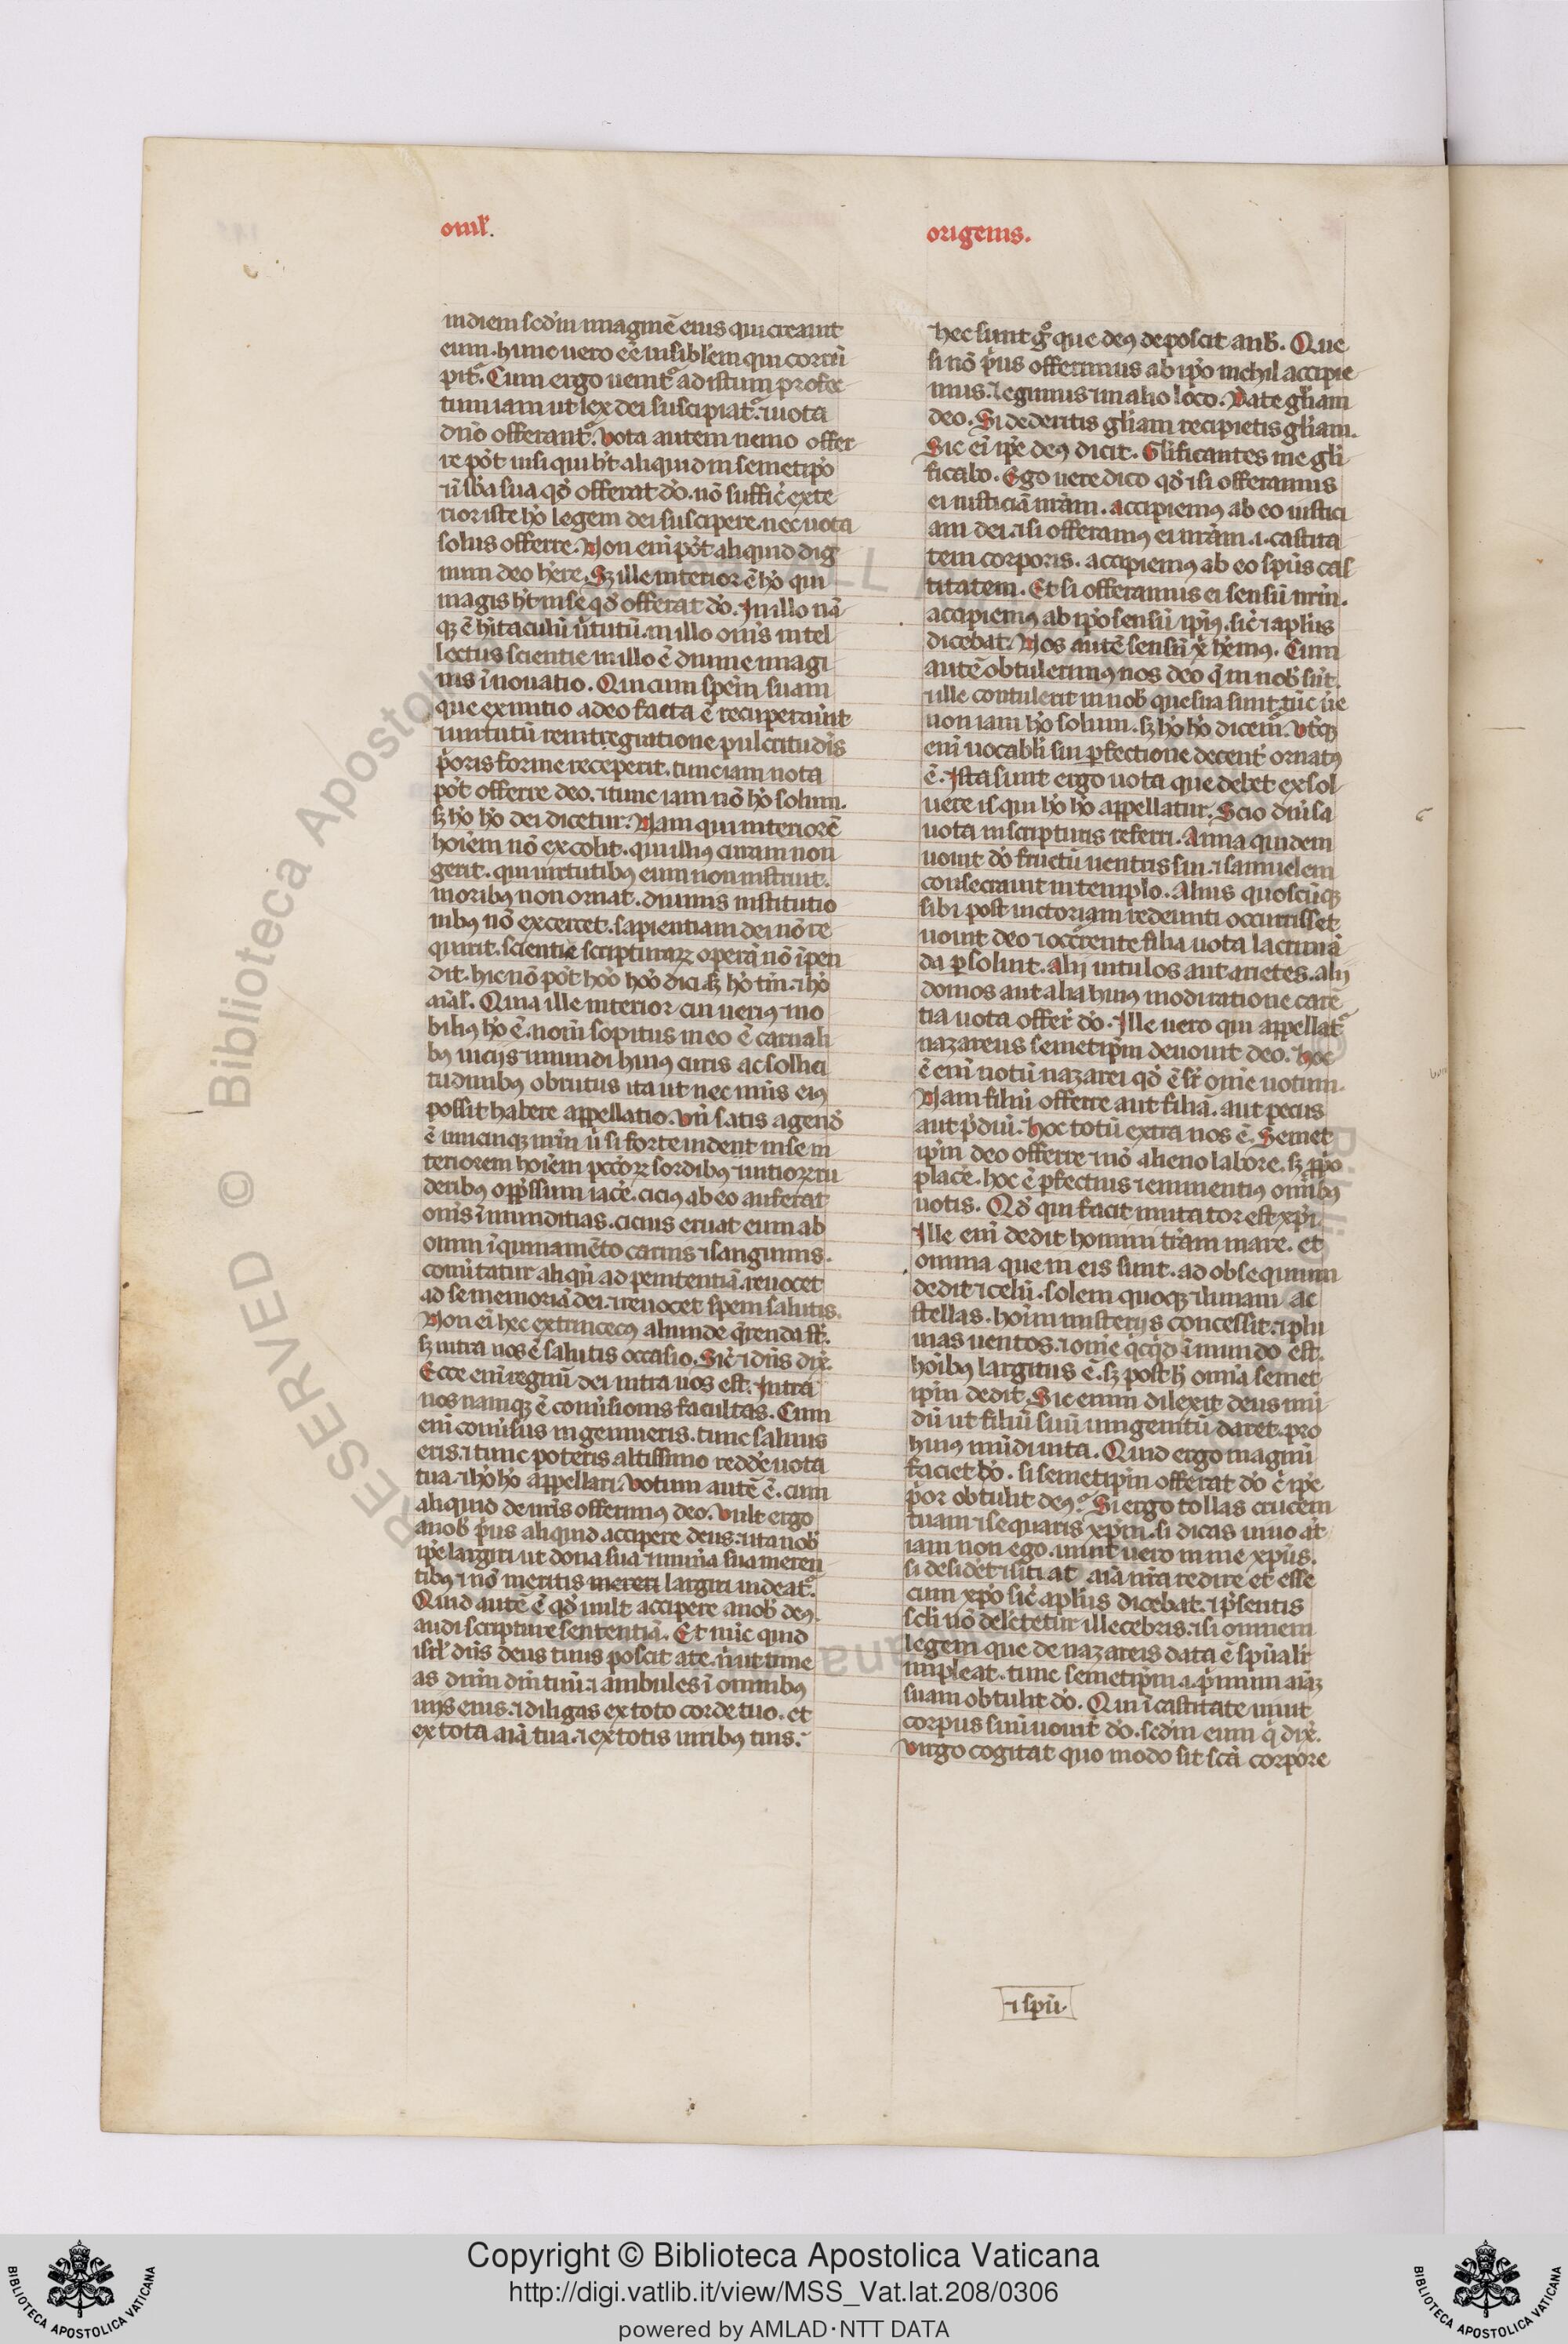 omil'.
origenis.
in diem scd'm imaginē eius qui creauit
eum. hunc uero eē uisiblem qui corrū
pit᷑. Cum ergo uenit᷑ ad istum profec
tum iam ut lex dei suscipiat᷑. ⁊ uota
dn̄o offerant᷑. Vota autem nemo offer
re pōt nisi qui ht aliquid in semetip̄o
⁊ ī sb̄a sua qd' offerat dō. nō suffic̄ exte
rior iste hō legem dei suscipere. nec uota
solus offerre. Non eni pōt aliquid dig
num deo h̄ere. Sꝫ ille interior ē hō qui
magis h̄t in se qd' offerat dō. In illo nā
qꝫ ē h̄itaculū u̔tutū. in illo om̄is intel
lectus scientie in illo ē diuine imagi
nis īnouatio. Qui cum spēm suam
que ex initio a deo facta ē recuperau̔it
⁊ uirtutū reintegratione pulcritudīs
p̔oris forme receperit. tunc iam uota
pōt offerre deo. ⁊ tunc iam nō hō solum.
sꝫ hō hō dei dicetur. Nam qui interiorē
hoīem nō excolit. qui illiꝰ curam non
gerit. qui uirtutibꝰ eum non instruit.
moribus non ornat. diuinis institutio
nibꝰ nō excercet. sapientiam dei nō re
quirit. scientie scripturaꝝ operā nō īpen
dit. hic nō pōt hoō hoō dici. sꝫ hō tm̄. ⁊ hō
aīal'. Quia ille interior cui ueriꝰ ⁊ no
biliꝰ hō ē. nom̄ sopitus in eo ē carnali
bꝰ uicijs ⁊ mundi huiꝰ curis ac sollici
tudinibꝰ obrutus ita ut nec nūs eiꝰ
possit habere appellatio. Vn̄ satis agend'
ē unicuiqꝫ nr̄m ū si forte uident in se in
teriorem hoīem pcc̄oꝝ sordibꝰ ⁊ uitioꝝ ru
deribꝰ opp̔ssum iacē. cicius ab eo auferat
om̄is īmunditias. cicius eruat eum ab
omni īquinamēto carnis ⁊ sanguinis.
conūtatur aliqn̄ ad penitentiā. reuocet
ad se memoriā dei. ⁊ reuocet spem salutis.
Non ei hec extrincecꝰ aliunde q̄renda st̄.
sꝫ intra nos ē salutis occasio. Sic̄ ⁊ dn̄s dix̄.
Ecce eni regnū dei intra uos est. Intra
nos namqꝫ ē conūsionis facultas. Cum
eni conūsus ingemueris. tunc saluus
eris. ⁊ tunc poteris altissimo reddē uota
tua. ⁊ hō hō appellari. Votum autē ē. cum
aliquid de nr̄is offerimꝰ deo. Vult ergo
a nob̄ p̔us aliquid accipere deus. ⁊ ita nob̄
ip̄e largiri ut dona sua ⁊ mun̄a sua meren
tibꝰ ⁊ nō meritis mereri largiri uideat᷑.
Quid autē ē qd' uult accipere a nob̄ deꝰ.
audi scripture sententiā. Et nūc quid
isrl' dn̄s deus tuus poscit a te. n̄ ut time
as dn̄m dm̄ tuū. ⁊ ambules ī omnibꝰ
uijs eius. ⁊ diligas ex toto corde tuo. et
ex tota aīa tua. ⁊ ex totis uiribꝰ tuis.
hec sunt gͦ que deꝰ deposcit a nob̄. Que
si nō p̔us offerimus ab ip̄o nichil accipie
mus. Legimus ⁊ in alio loco. Date gliam
deo. Si dederitis gliam recipietis gliam.
Sic ei ip̄e deꝰ dicit. Glificantes me gli
ficabo. Ego uere dico qd' ⁊ si offeramus
ei iusticiā nr̄am. accipiemꝰ ab eo iustici
am dei. ⁊ si offeramꝰ ei nr̄am .i. castita
tem corporis. accipiemꝰ ab eo sp̄us cas
titatem. Et si offeramus ei sensū nr̄m.
accipiemꝰ ab ip̄o sensū ip̄iꝰ. sic̄ ⁊ apl̄us
dicebat. Nos autē sensū x̄ h̄emꝰ. Cum
autē obtulerimꝰ nos deo q̄ in nob̄ sūt.
⁊ ille contulerit in nob̄ que sua sunt. tūc ūe
non iam hō solum. sꝫ hō hō dicem᷑. Vt͛qꝫ
eni uocabl'i sui ꝑfectione decent̄ ornatꝰ
ē. Ista sunt ergo uota que debet exsol
uere is qui hō hō appellatur. Scio diūsa
uota in scripturis referri. Anna quidem
uouit dō fructū uentris sui. ⁊ samuelem
consecrauit in templo. Alius quoscūqꝫ
sibi post uictoriam redeunti occurrisset
uouit deo ⁊ occ̄rente filia uota lacrimā
da ꝑsoluit. alij uitulos aut arietes. alij
domos aut alia huiꝰ modi ratione carē
tia uota offer̄ dō. Ille uero qui appellat᷑
nazareus semetip̄m deuouit deo. Hoc
ē eni uotū nazarei qd' ē sr̄ om̄e uotum.
Nam filiū offerre aut filiā. aut pecus
aut p̔diū. Hoc totū extra nos ē. Semet
ip̄m deo offerre ⁊ nō alieno labore. sꝫ ꝓp̄o
placē. hoc ē ꝑfectius ⁊ eminentiꝰ omībꝰ
uotis. Qd' qui facit imitator est xp̄i.
Ille eni dedit homini tr̄am mare. et
omnia que in eis sunt. ad obsequium
dedit ⁊ celū. solem quoqꝫ ⁊ lunam ac
stellas. hoīm misterijs concessit. ⁊ plu
uias uentos. ⁊ om̄e q̔cq̔d ī mundo est.
hoībꝰ largitus ē. sꝫ post h̄ omīa semet
ip̄m dedit. Sic enim dilexit deus mū
dū ut filiū suū unigenitū daret. pro
huiꝰ mūdi uita. Quid ergo magnū
faciet hō. si semetip̄m offerat dō c̄ ip̄e
p̔or obtulit deꝰ. Si ergo tollas crucem
tuam ⁊ sequaris xp̄m. si dicas uiuo at̄
iam non ego. uiuit uero in me xp̄us.
si desidēt ⁊ sitiat aīa nr̄a redire et esse
cum xp̄o sic̄ apl̄us dicebat. ⁊ p̔sentis
scl̄i nō delc̄tetur illecebris. ⁊ si omnem
legem que de nazareis data ē sp̄uali͛
impleat. tunc semetip̄m .i. p̔mum aīaꝫ
suam obtulit dō. Qui ī castitate uiuit
corpus suū uouit dō. scd'm eum q̔ dix̄.
Virgo cogitat quo modo sit scā corpore
⁊ sp̄u.
RESERVED © Biblioteca Apostoli
ALL
Copyright © Biblioteca Apostolica Vaticana
http://digi.vatlib.it/view/MSS_Vat.lat.208/0306
powered by AMLAD·NTT DATA
BIBLIOTECA APOSTOLICA VATICANA
BIBLIOTECA APOSTOLICA VATICANA